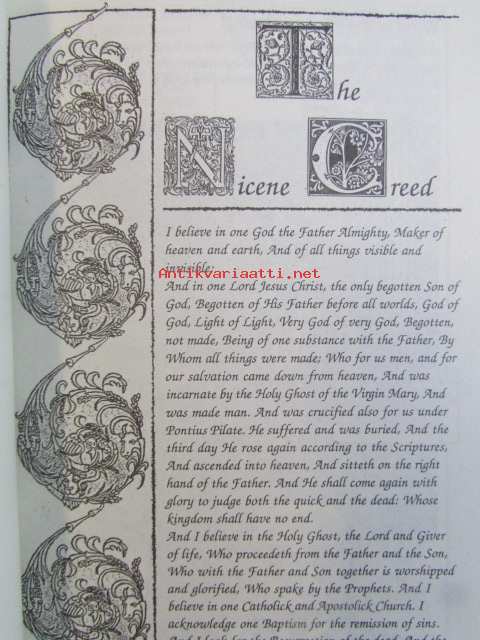 The
Nicene Creed
I believe in one God the Father Almighty, Maker of
heaven and earth, And of all things visible and
invisible;
Antikvariaatti.net
And in one Lord Jesus Christ, the only begotten Son of
God, Begotten of His Father before all worlds, God of
God, Light of Light, Very God of very God, Begotten,
not made, Being of one substance with the Father, By
Whom all things were made; Who for us men, and for
our salvation came down from heaven, And was
incarnate by the Holy Ghost of the Virgin Mary, And
was made man. And was crucified also for us under
Pontius Pilate. He suffered and was buried, And the
third day He rose again according to the Scriptures,
And ascended into heaven, And sitteth on the right
hand of the Father. And He shall come again with
glory to judge both the quick and the dead: Whose
kingdom shall have no end.
And I believe in the Holy Ghost, the Lord and Giver
of life, Who proceedeth from the Father and the Son,
Who with the Father and Son together is worshipped
and glorified, Who spake by the Prophets. And I
believe in one Catholick and Apostolick Church. I
acknowledge one Baptism for the remission of sins.
And I look for the Resurrection of the dead, And the